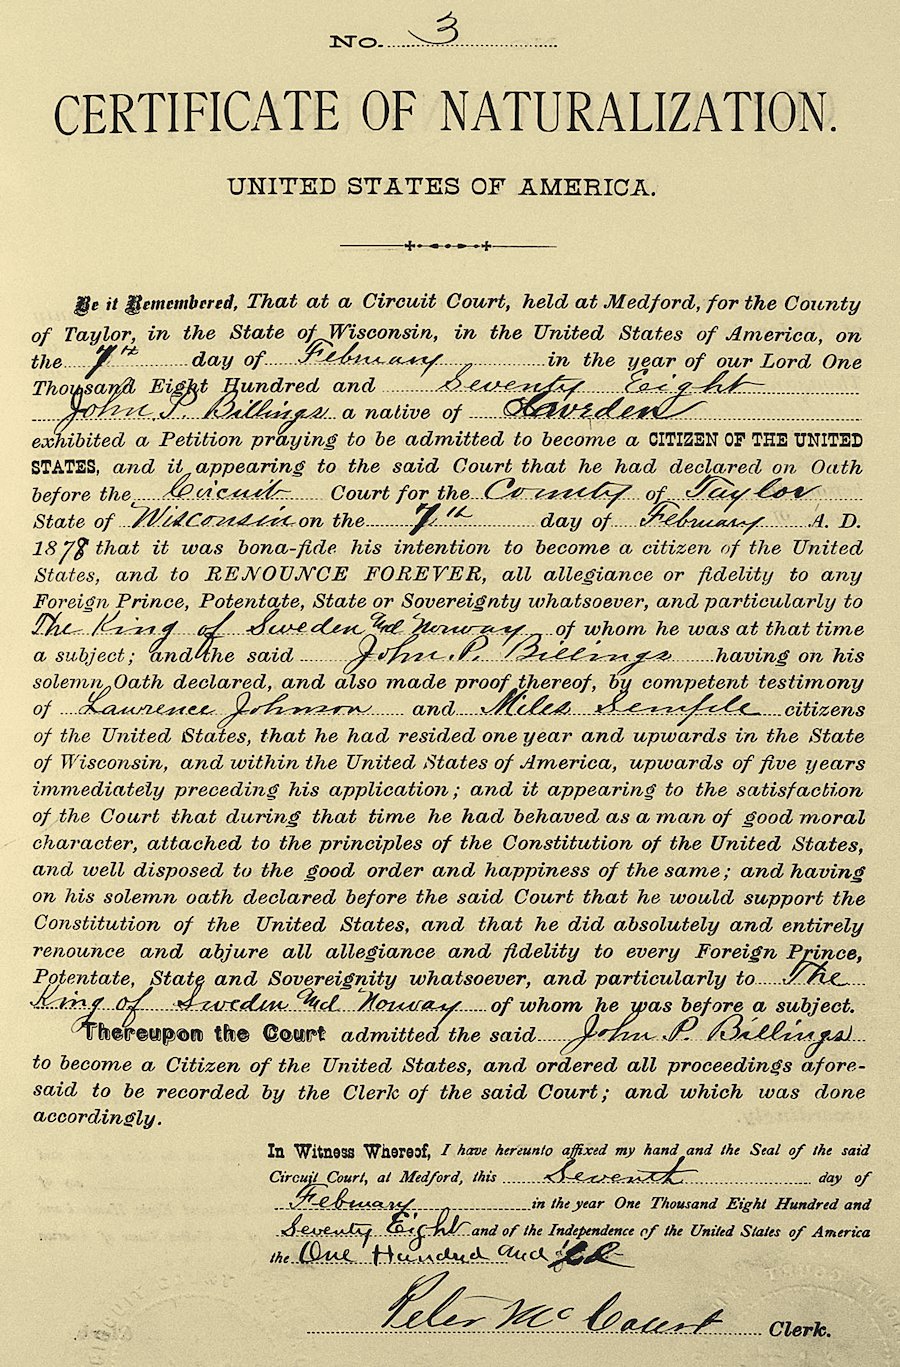 No. 3
CERTIFICATE OF NATURALIZATION.
UNITED STATES OF AMERICA.
Be it Remembered, That at a Circuit Court, held at Medford, for the County
of Taylor, in the State of Wisconsin, in the United States of America, on
the 7th day of February in the year of our Lord One
Thousand Eight Hundred and Seventy Eight
John P. Billings a native of Sweden
exhibited a Petition praying to be admitted to become a CITIZEN OF THE UNITED
STATES, and it appearing to the said Court that he had declared on Oath
before the Circuit Court for the County of Taylor
State of Wisconsin on the 7th day of February A. D.
1878 that it was bona-fide his intention to become a citizen of the United
States, and to RENOUNCE FOREVER, all allegiance or fidelity to any
Foreign Prince, Potentate, State or Sovereignty whatsoever, and particularly to
The King of Sweden and Norway of whom he was at that time
a subject; and the said John P. Billings having on his
solemn Oath declared, and also made proof thereof, by competent testimony
of Lawrence Johnson and Miles Semple citizens
of the United States, that he had resided one year and upwards in the State
of Wisconsin, and within the United States of America, upwards of five years
immediately preceding his application; and it appearing to the satisfaction
of the Court that during that time he had behaved as a man of good moral
character, attached to the principles of the Constitution of the United States,
and well disposed to the good order and happiness of the same; and having
on his solemn oath declared before the said Court that he would support the
Constitution of the United States, and that he did absolutely and entirely
renounce and abjure all allegiance and fidelity to every Foreign Prince,
Potentate, State and Sovereignity whatsoever, and particularly to The
King of Sweden and Norway of whom he was before a subject.
Thereupon the Court admitted the said John P. Billings
to become a Citizen of the United States, and ordered all proceedings afore-
said to be recorded by the Clerk of the said Court; and which was done
accordingly.
In Witness Whereof, I have hereunto affixed my hand and the Seal of the said
Circuit Court, at Medford, this Seventh day of
February in the year One Thousand Eight Hundred and
Seventy Eight and of the Independence of the United States of America
the One Hundred and
Peter McCourt Clerk.